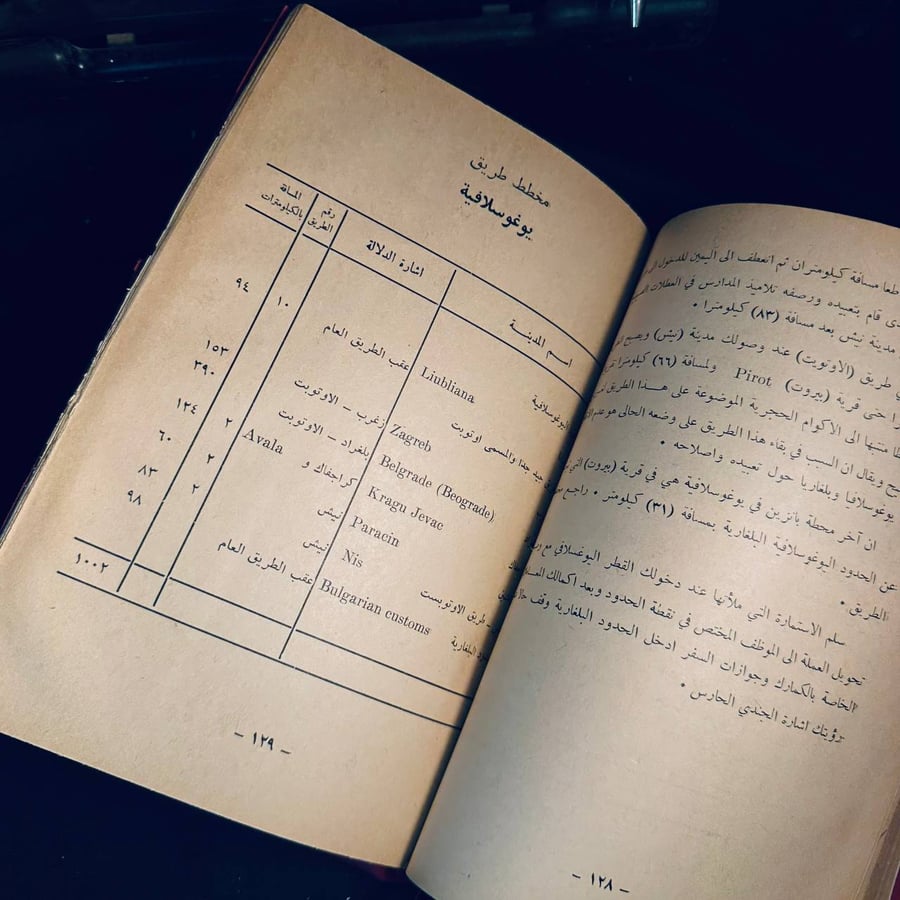 طعا مسافة كيلومتران ثم انعطف الى اليمين للدخول
دى قام بتعبيده ورصفه تلاميذ المدارس في العطلات
مدينة نيش بعد مسافة (٨٣) كيلومترا •
طريق (الاوتوبت) عند وصولك مدينة (نيش) ويصبح
را حتى قرية (بيروت) Pirot ولمسافة (٦٦) كيلومترا
منبتها الى الاكوام الحجرية الموضوعة على هذا الطريق
ويقال ان السبب في بقاء هذا الطريق على وضعه الحالي هو عدم
يوغوسلافيا وبلغاريا حول تعبيده واصلاحه •
ان آخر محطة بانزين في يوغوسلافية هي في قرية (بيروت) التي
عن الحدود اليوغوسلافية البلغارية بمسافة (٣١) كيلومتر • راجع
الطريق •
سلم الاستمارة التي ملأتها عند دخولك القطر اليوغسلافي مع
تحويل العملة الى الموظف المختص في نقطة الحدود وبعد اكمالك
الخاصة بالكمارك وجوازات السفر ادخل الحدود البلغارية وقف
رؤيتك اشارة الجندي الحارس •
– ١٢٨ –
مخطط طريق
يوغوسلافية
اسم المدينة اشارة الدلالة رقم الطريق المسافة بالكيلومترات
اليوغوسلافية
Liubliana عقب الطريق العام ١٠ ٩٤
جيد جدا والمسمى اوتوبت
Zagreb زغرب – الاوتوبت ١٥٣
Belgrade (Beograde) بلغراد – الاوتوبت ٣٩٠
Kragu Jevac كراجفاك و Avala ٢ ١٢٤
Paracin نيش ٢ ٦٠
Nis نيش ٢ ٨٣
طريق الاوتوبست
Bulgarian customs عقب الطريق العام ٩٨
البلغارية
١٠٠٢
– ١٢٩ –